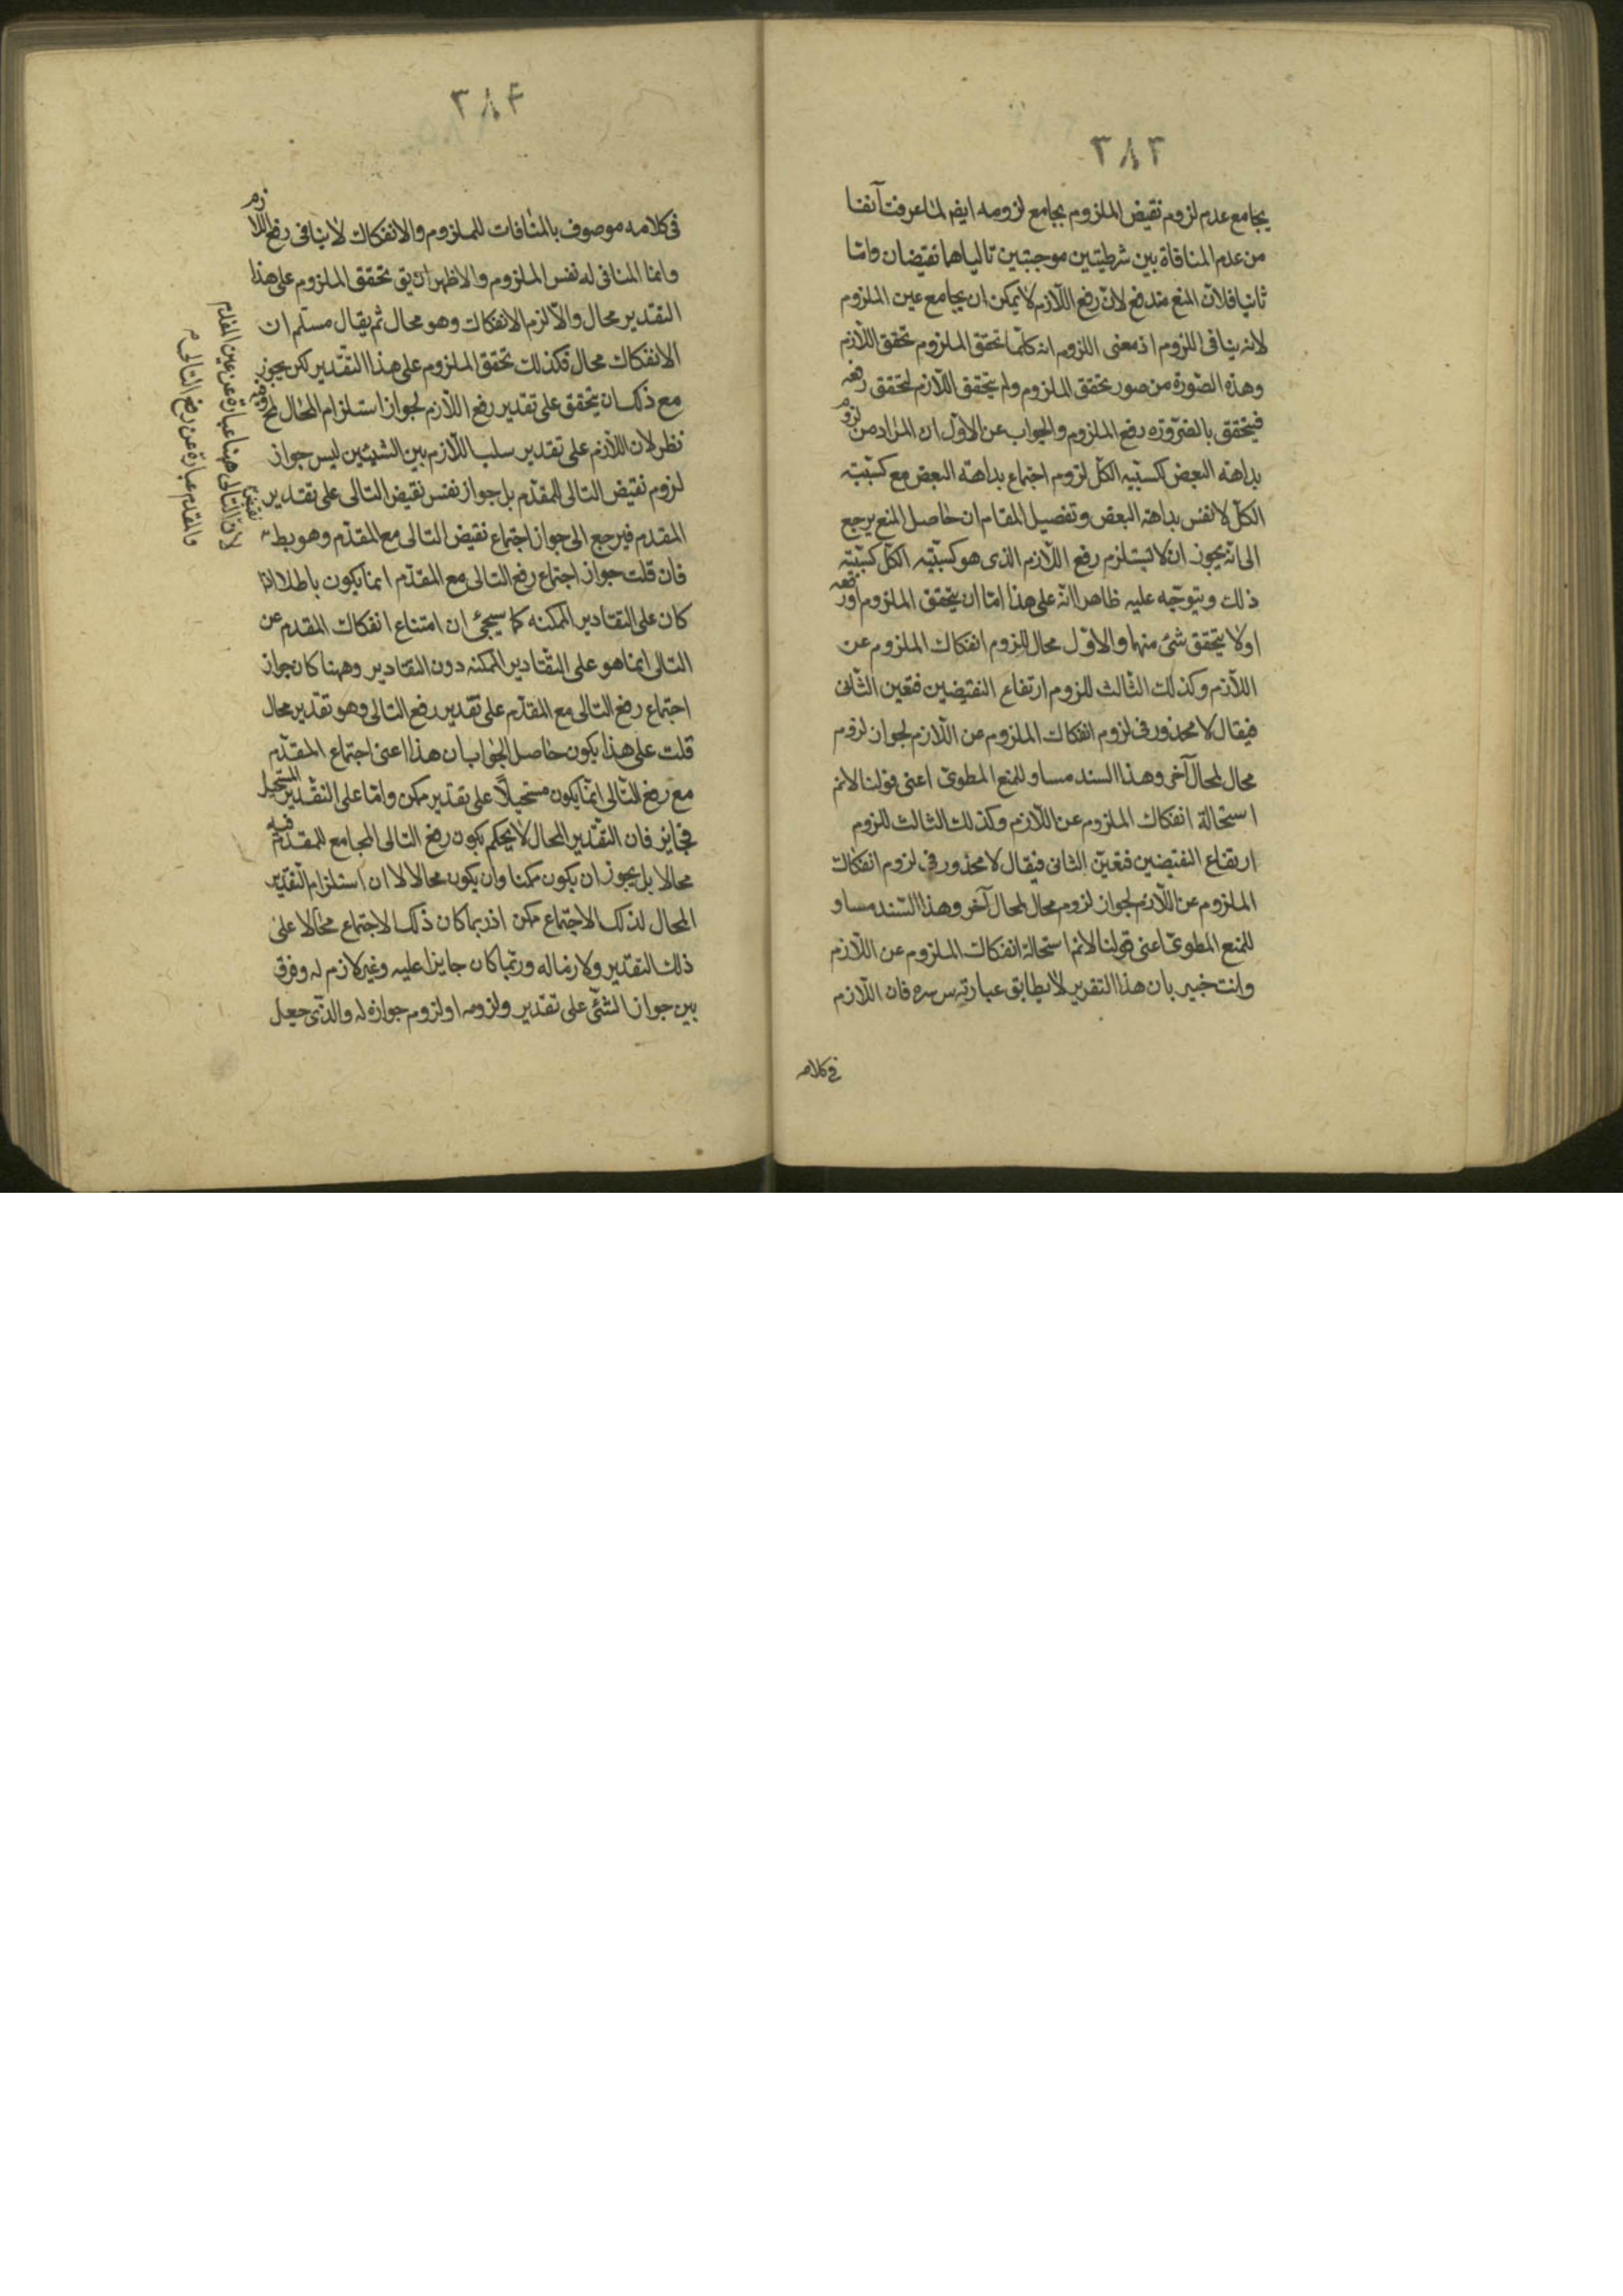 ٣٨٣
يجامع عدم لزوم نقيض الملزوم يجامع لزومه ايضا لما عرفت آنفا
من عدم المنافاة بين شرطيتين موجبتين تالياهما نقيضان واما
ثانيا فلان المنع مندفع لان رفع اللازم لا يمكن ان يجامع عين الملزوم
لانه ينافى اللزوم اذ معنى اللزوم انه كلما تحقق الملزوم تحقق اللازم
وهذه الصورة من صور تحقق الملزوم ولم يتحقق اللازم لتحقق رفعه
فيتحقق بالضرورة رفع الملزوم والجواب عن الاول ان المراد من لزوم
بداهته البعض كسبيه الكل لزوم اجتماع بداهته البعض مع كسبيته
الكل لا نفس بداهته البعض وتفصيل المقام ان حاصل المنع يرجع
الى انه يجوز ان لا يستلزم رفع اللازم الذى هو كسبيته الكل كسبيته
ذلك ويتوجه عليه ظاهرا انه على هذا اما ان يتحقق الملزوم او رفعه
او لا يتحقق شئ منهما والاول محال للزوم انفكاك الملزوم عن
اللازم وكذلك الثالث للزوم ارتفاع النقيضين فتعين الثانى
فيقال لا محذور فى لزوم انفكاك الملزوم من اللازم لجواز لزوم
محال لمحال آخر وهذا السند مساو للمنع المطوى اعنى قولنا لانم
استحالة انفكاك الملزوم عن اللازم وكذلك الثالث للزوم
ارتفاع النقيضين فتعين الثانى فيقال لا محذور فى لزوم انفكاك
الملزوم عن اللازم لجواز لزوم محال لمحال آخر وهذا السند مساو
للمنع المطوى اعنى قولنا لانم استحالة انفكاك الملزوم عن اللازم
وانت خبير بان هذا التقرير لا يطابق عبارته س سره فان اللازم
فى كلامه
٣٨۴
فى كلامه موصوف بالمنافات للملزوم والانفكاك لا ينافى رفع اللازم
وانما المنافى له نفس الملزوم والاظهر ان يق تحقق الملزوم على هذا
التقدير محال والا لزم الانفكاك وهو محال ثم يقال مسلم ان
الانفكاك محال فكذلك تحقق الملزوم على هذا التقدير لكن يجوز
مع ذلك ان يتحقق على تقدير رفع اللازم لجواز استلزام المحال لمح وفيه
نظر لان اللازم على تقدير سلب اللازم بين الشيئين ليس جواز
لزوم نقيض التالى للمقدم بل جواز نفس نقيض التالى على تقدير
المقدم فيرجع الى جواز اجتماع نقيض التالى مع المقدم وهو بط
فان قلت جواز اجتماع رفع التالى مع المقدم انما يكون باطلا اذا
كان على التقادير الممكنه كما سيجئ ان امتناع انفكاك المقدم عن
التالى انما هو على التقادير الممكنه دون التقادير وههنا كان جواز
اجتماع رفع التالى مع المقدم على تقدير رفع التالى وهو تقدير محال
قلت على هذا يكون حاصل الجواب ان هذا اعنى اجتماع المقدم
مع رفع التالى انما يكون مستحيلا على تقدير ممكن واما على التقدير المستحيل
فجايز فان التقدير المحال لا يحكم بكون رفع التالى المجامع للمقدم فيه
محالا بل يجوز ان يكون ممكنا وان يكون محالا لا ان استلزام التقدير
المحال لذلك الاجتماع ممكن اذ ربما كان ذلك الاجتماع محالا على
ذلك التقدير ولازما له وربما كان جايزا عليه وغير لازم له وفرق
بين جواز الشئ على تقدير ولزومه او لزوم جوازه له والذى جعل
لان التالى ههنا عبارة عن عين المقدم
والمقدم عبارة عن رفع التالى م